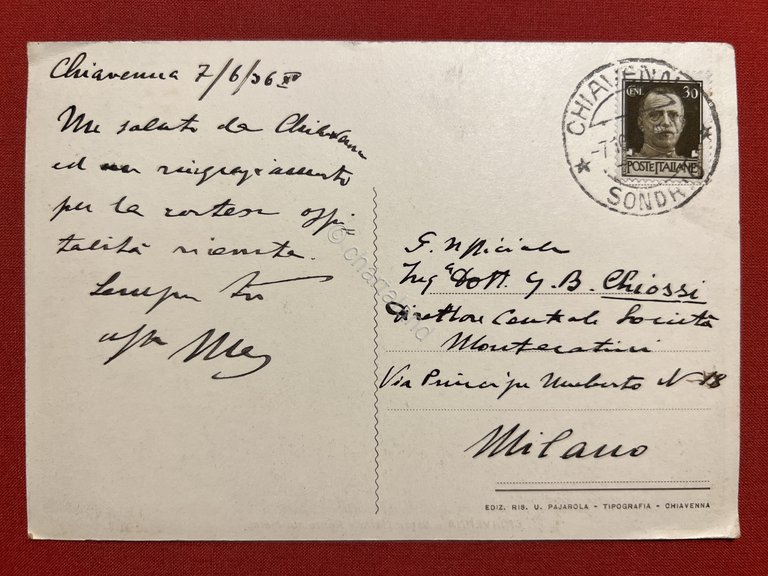 Chiavenna 7/6/36 XIV
Un saluto da Chiavenna
ed un ringraziamento
per la cortese ospi
talità ricevuta.
Sempre tuo
aff
CHIAVENNA
SONDR
CENT. 30
POSTE ITALIANE
G. Ufficiale
Ing. Dott. G. B. Chiossi
Direttore Centrale Società
Montecatini
Via Principe Umberto N 18
Milano
EDIZ. RIS. U. PAJAROLA - TIPOGRAFIA - CHIAVENNA